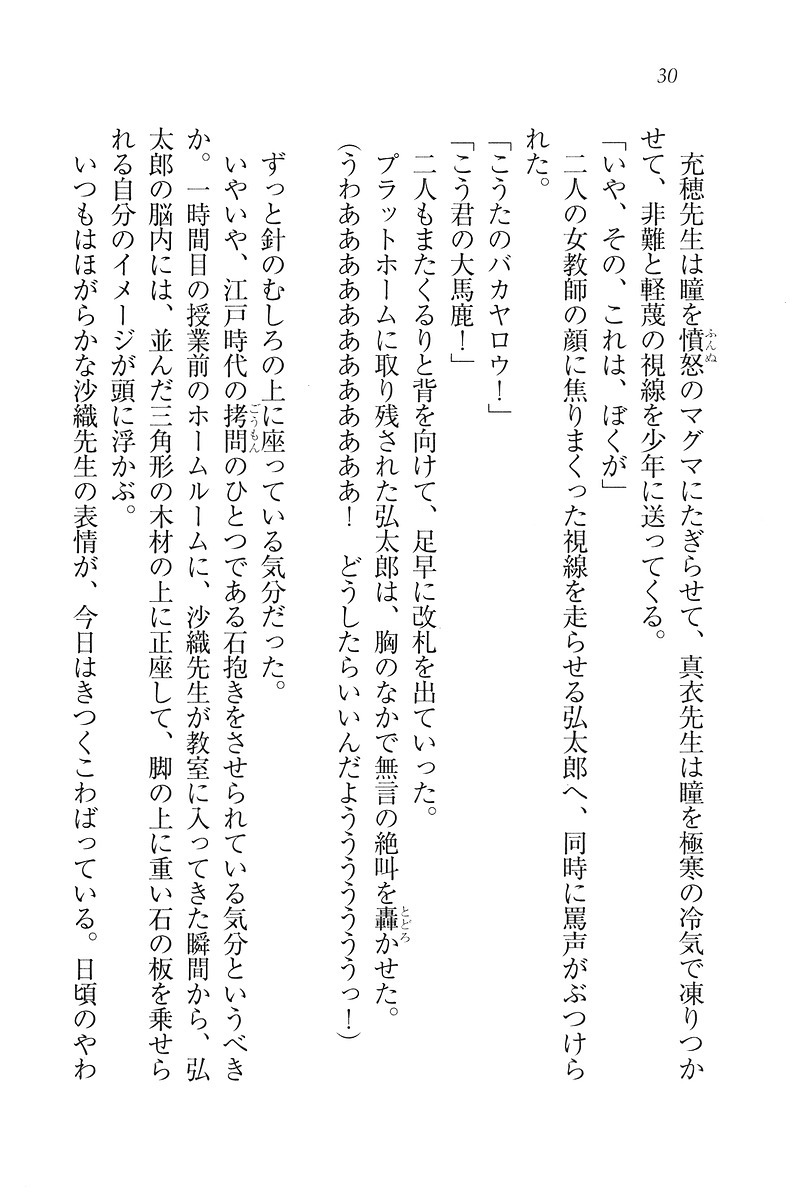 30
充穂先生は瞳を憤怒のマグマにたぎらせて、真衣先生は瞳を極寒の冷気で凍りつか
ふんぬ
せて、非難と軽蔑の視線を少年に送ってくる。
「いや、その、これは、ぼくが」
二人の女教師の顔に焦りまくった視線を走らせる弘太郎へ、同時に罵声がぶつけら
れた。
「こうたのバカヤロウ！」
「こう君の大馬鹿！」
二人もまたくるりと背を向けて、足早に改札を出ていった。
プラットホームに取り残された弘太郎は、胸のなかで無言の絶叫を轟かせた。
とどろ
（うわああああああああああああ！　どうしたらいいんだよううううううっ！）
ずっと針のむしろの上に座っている気分だった。
いやいや、江戸時代の拷問のひとつである石抱きをさせられている気分というべき
ごうもん
か。一時間目の授業前のホームルームに、沙織先生が教室に入ってきた瞬間から、弘
太郎の脳内には、並んだ三角形の木材の上に正座して、脚の上に重い石の板を乗せら
れる自分のイメージが頭に浮かぶ。
いつもはほがらかな沙織先生の表情が、今日はきつくこわばっている。日頃のやわ